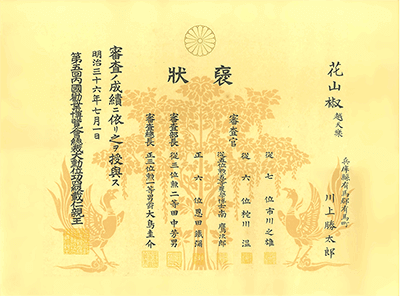 褒狀
花山椒
兵庫縣有馬郡有馬町
川上勝太郎
審査官
從七位市川之雄
從六位 川温
南鷹次郎
正六位恩田鐵彌
審査部長 從三位勲二等田中芳男
審査總長 正三位勲一等男爵大鳥圭介
審査ノ成績ニ依リ之ヲ授與ス
明治三十六年七月一日
第五回內國勸業博覽會總裁大勲位功四級載仁親王